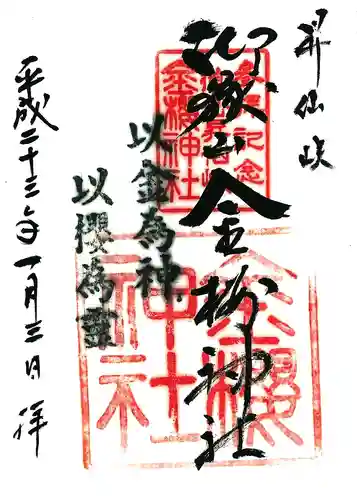 昇仙峡
御嶽山金櫻神社
以金為神
以櫻為靈
平成二十三年一月三日 拝
金櫻神社
金櫻神社